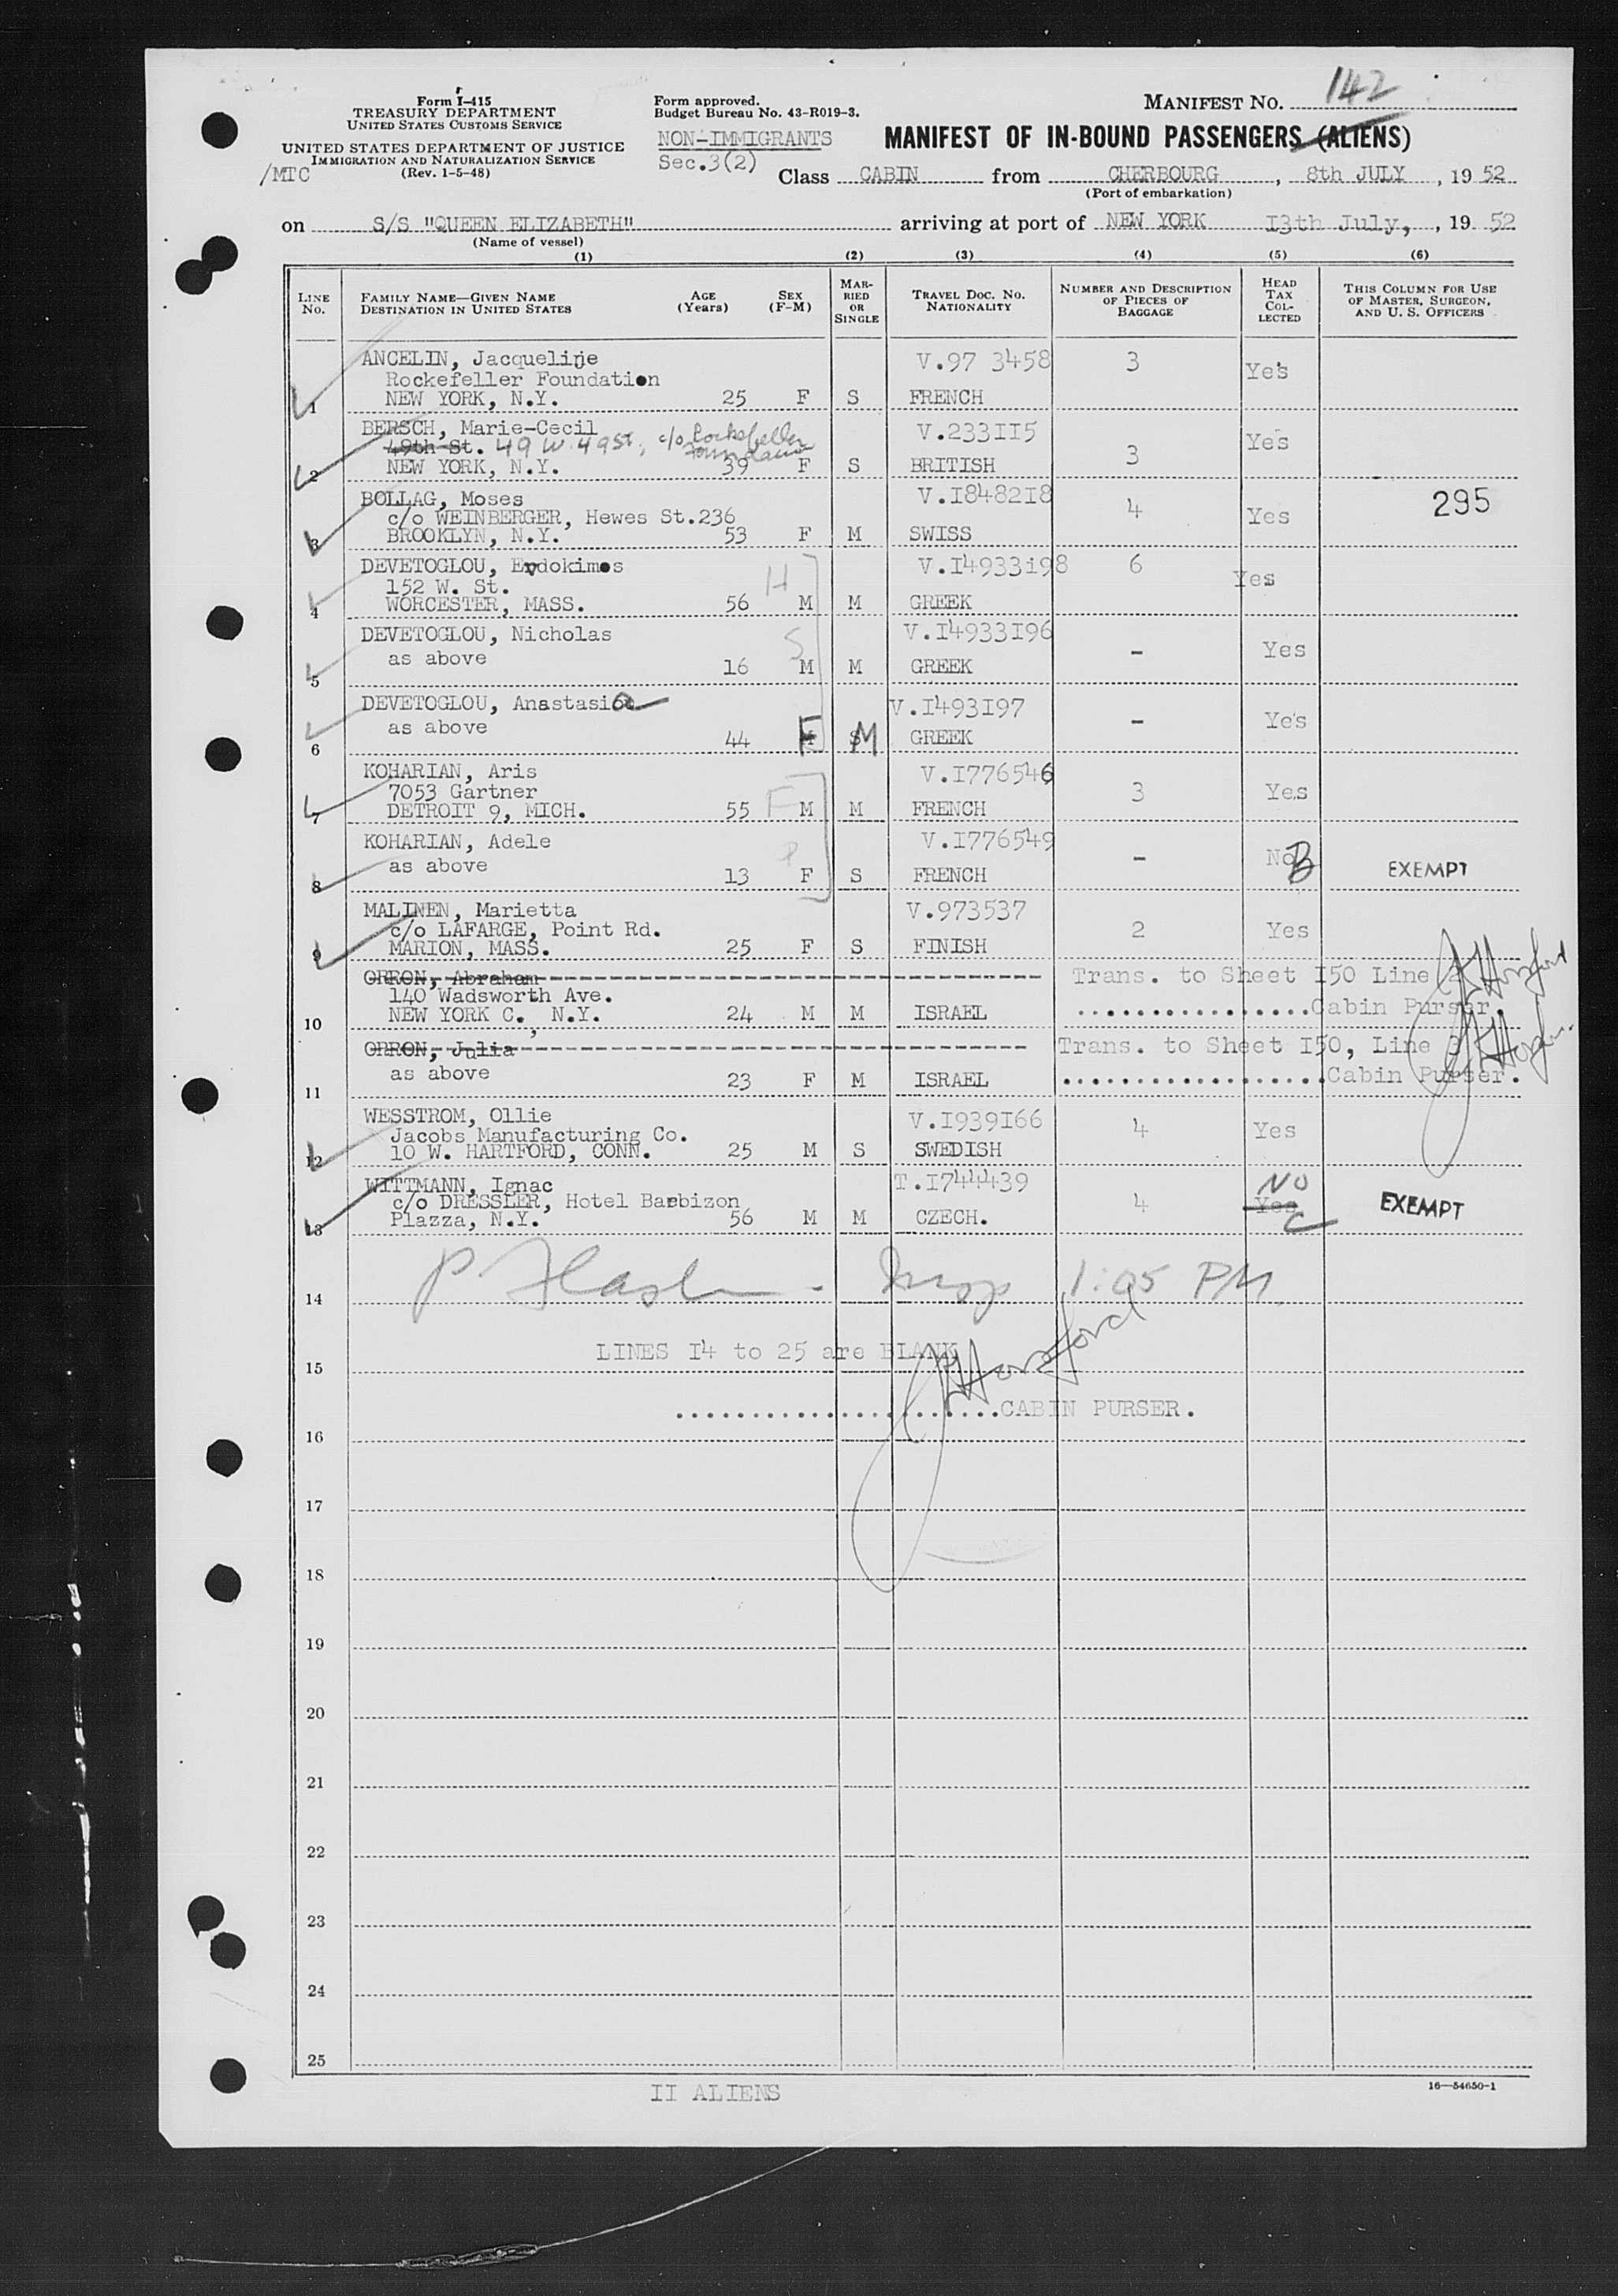 Form I-415
TREASURY DEPARTMENT
UNITED STATES CUSTOMS SERVICE
UNITED STATES DEPARTMENT OF JUSTICE
IMMIGRATION AND NATURALIZATION SERVICE
(Rev. 1-5-48)
/MTC
Form approved.
Budget Bureau No. 43-R019-3.
NON-IMMIGRANTS
Sec.3(2)
MANIFEST NO. 142
MANIFEST OF IN-BOUND PASSENGERS (ALIENS)
Class CABIN from CHERBOURG, 8th JULY, 19 52
(Port of embarkation)
on S/S "QUEEN ELIZABETH" arriving at port of NEW YORK I3th July, , 19 52
(Name of vessel)
(1) (2) (3) (4) (5) (6)
LINE NO. FAMILY NAME—GIVEN NAME DESTINATION IN UNITED STATES AGE (Years) SEX (F-M) MARRIED OR SINGLE TRAVEL DOC. NO. NATIONALITY NUMBER AND DESCRIPTION OF PIECES OF BAGGAGE HEAD TAX COLLECTED THIS COLUMN FOR USE OF MASTER, SURGEON, AND U. S. OFFICERS
ANCELIN, Jacqueline V.97 3458 3 Yes
Rockefeller Foundation
1 NEW YORK, N.Y. 25 F S FRENCH
BERSCH, Marie-Cecil V.233II5 Yes
49th St. 49 W. 49 St., c/o Rockefeller Foundation 3
2 NEW YORK, N.Y. 39 F S BRITISH
BOLLAG, Moses V.I8482I8 4 Yes 295
c/o WEINBERGER, Hewes St.236
3 BROOKLYN, N.Y. 53 F M SWISS
DEVETOGLOU, Evdokimos V.I4933i98 6 Yes
152 W. St. H
4 WORCESTER, MASS. 56 M M GREEK
DEVETOGLOU, Nicholas S V.I4933I96 - Yes
as above
5 16 M M GREEK
DEVETOGLOU, Anastasia V.I493I97 - Yes
as above
6 44 F M GREEK
KOHARIAN, Aris V.I776546
7053 Gartner 3 Yes
7 DETROIT 9, MICH. 55 F M M FRENCH
KOHARIAN, Adele V.I776549
as above - No B EXEMPT
8 13 F S FRENCH
MALINEN, Marietta V.973537
c/o LAFARGE, Point Rd. 2 Yes
9 MARION, MASS. 25 F S FINISH
ORRON, Abraham Trans. to Sheet I50 Line 2
140 Wadsworth Ave.
10 NEW YORK C., N.Y. 24 M M ISRAEL Cabin Purser.
ORRON, Julia Trans. to Sheet I50, Line 3
as above
11 23 F M ISRAEL Cabin Purser.
WESSTROM, Ollie V.I939I66 4 Yes
Jacobs Manufacturing Co.
12 10 W. HARTFORD, CONN. 25 M S SWEDISH
WITTMANN, Ignac T.I744439 NO
c/o DRESSLER, Hotel Barbizon 4 Yes C EXEMPT
13 Plazza, N.Y. 56 M M CZECH.
14 1:05 PM
15 LINES I4 to 25 are BLANK
J Horsford
CABIN PURSER.
16
17
18
19
20
21
22
23
24
25
II ALIENS
16—54650-1